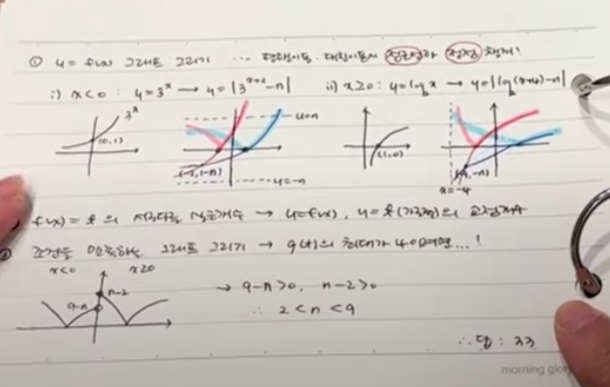 ① y = f(x) 그래프 그리기 … 평행이동, 대칭이동시 점근선과 정점 체크!
i) x<0 : y=3^x → y=|3^{x+2}-n| ii) x≥0 : y=log₂x → y=|log₂(x+4)-n|
3^x
(0,1)
y=n
(-2,1-n)
y=-n
(1,0)
(-3,-n)
x=-4
f(x)=t 의 서로다른 실근개수 → y=f(x), y=t(가로선)의 교점개수
조건을 만족하는 그래프 그리기 → g(t)의 최대가 4이려면…!
x<0 x≥0
9-n
n-2
→ 9-n>0, n-2>0
∴ 2<n<9
∴ 답 : 33
morning glory